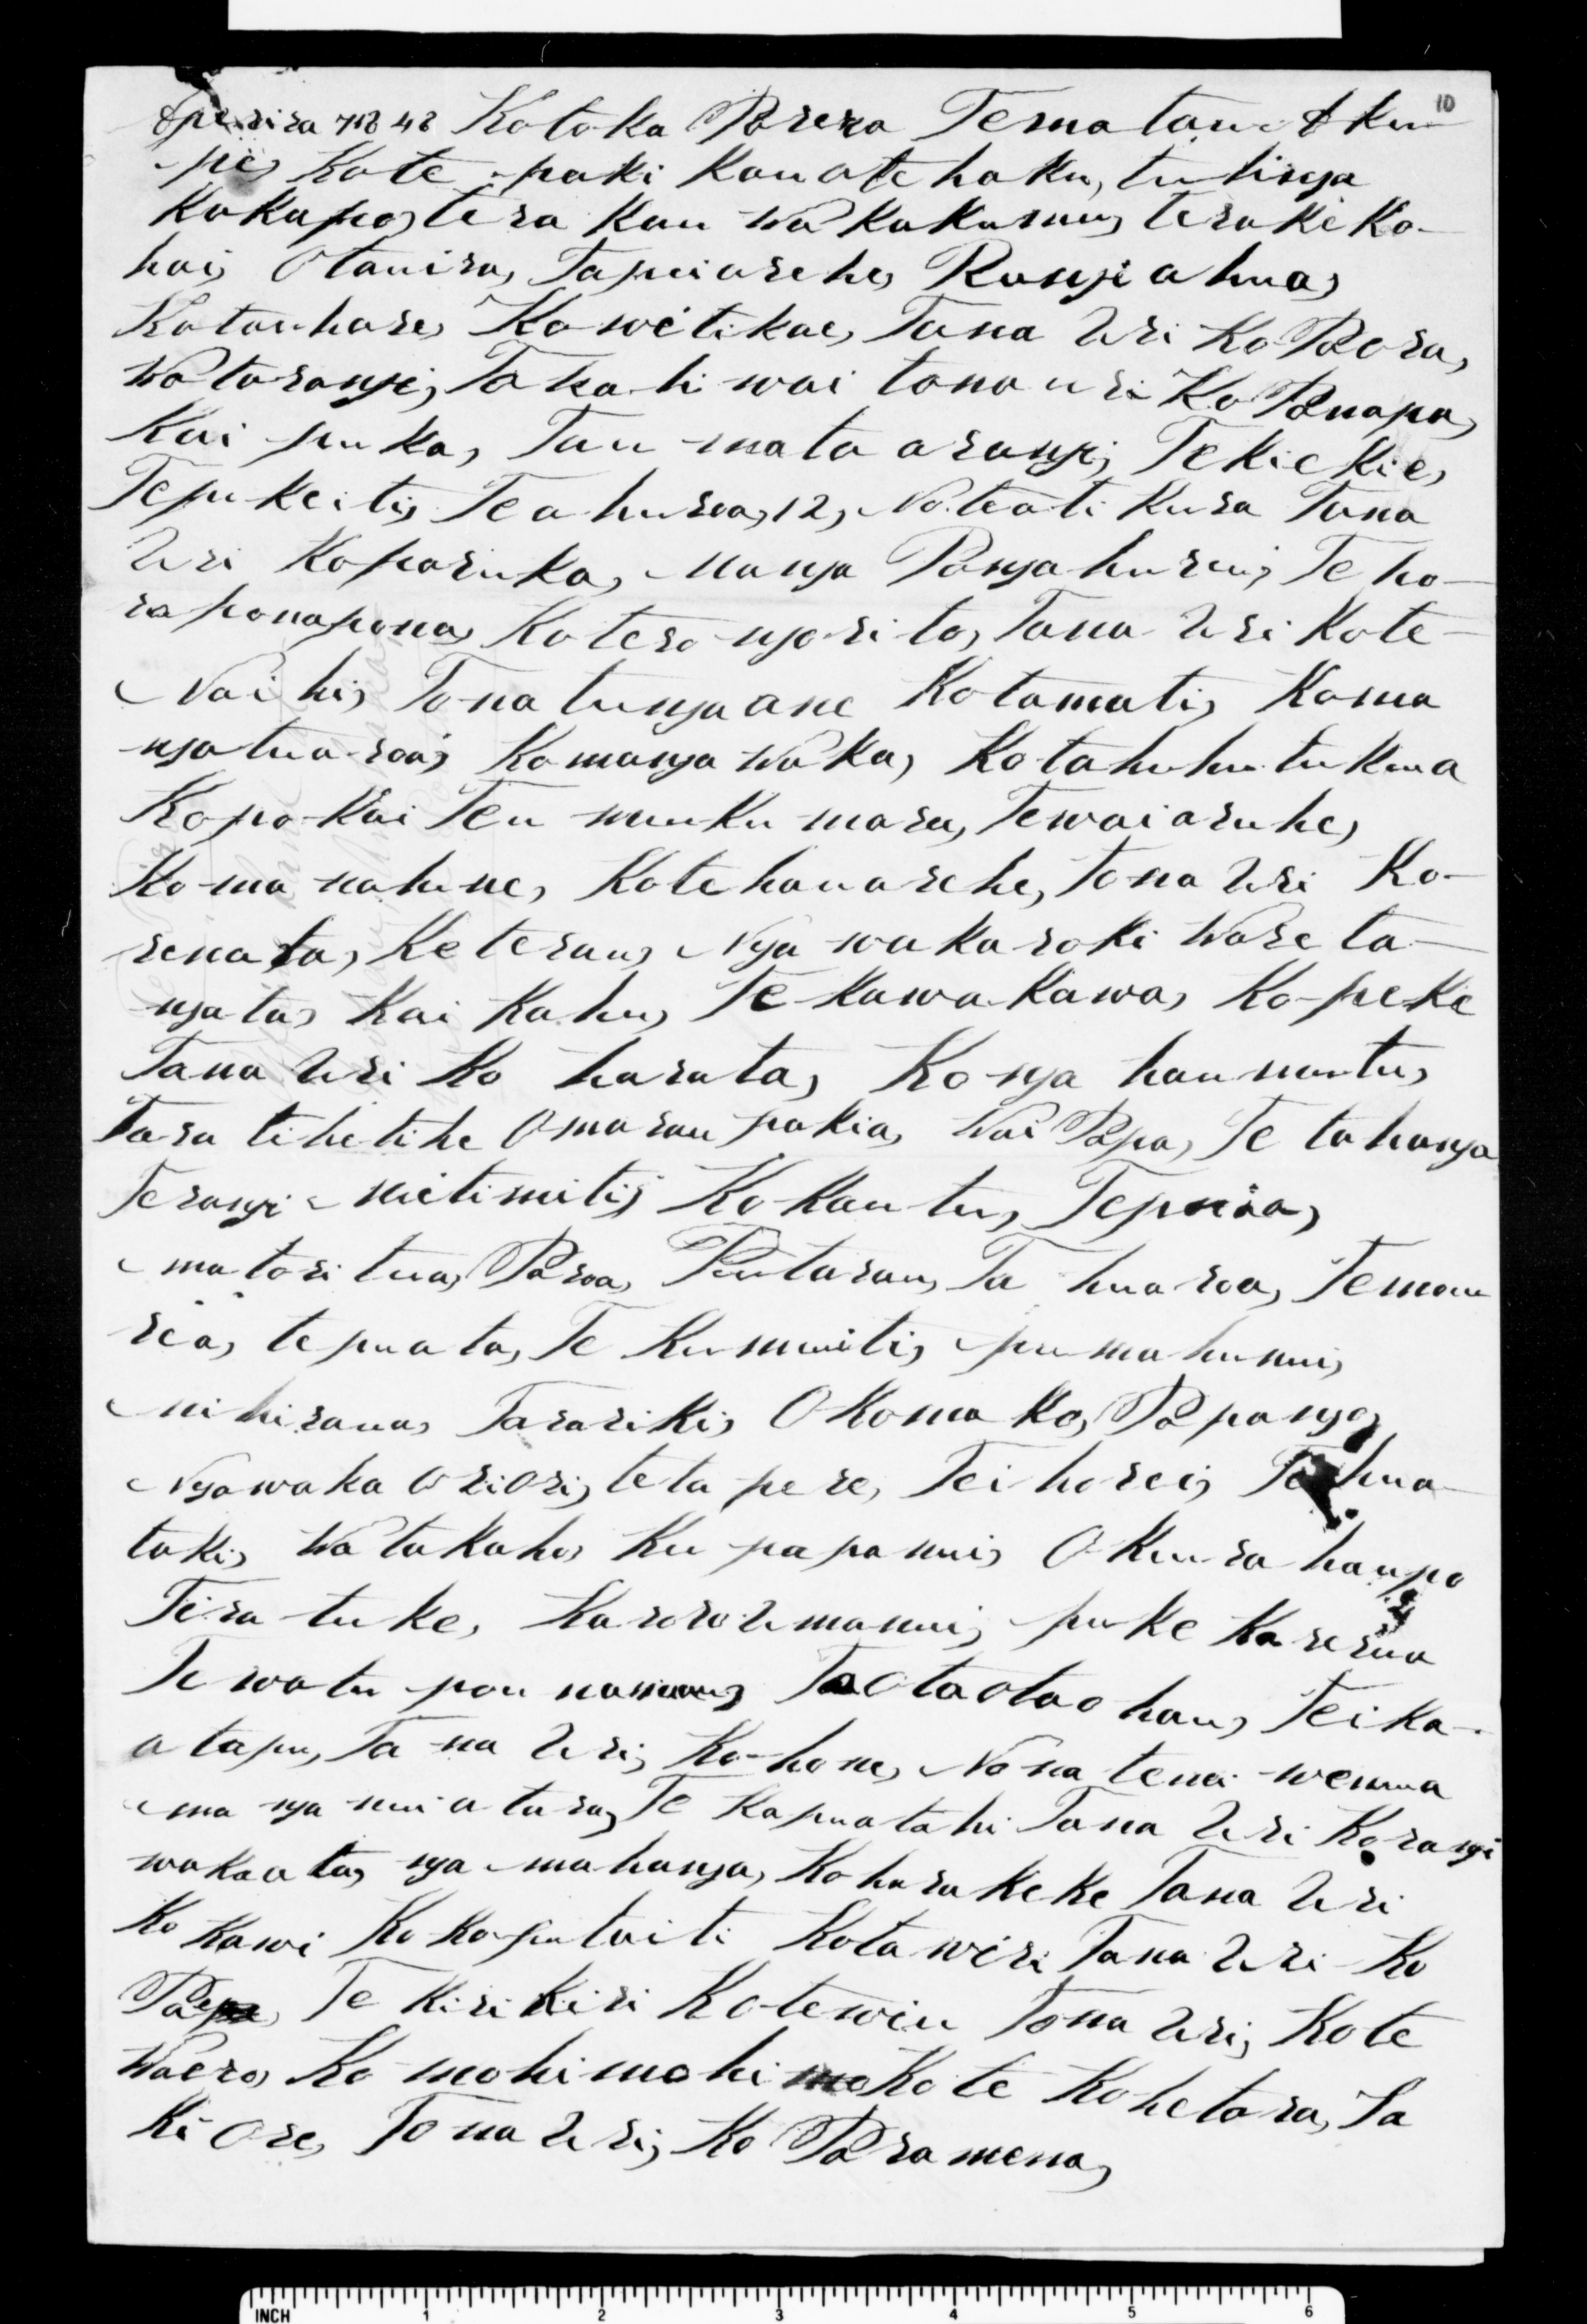 10
Aperira 7 1848 Kotoka Porera Tematau o te ku
pe, Kote paki Kauate haku, tutinga
Kakapo, tera Kau Wakakurmu, terakeko-
hai, Otauira, Tapuiarehe, Rangiahua,
Kotauhare, Kowetikae, Tana Uri Ko Pora,
Wataranji, Takahiwai tona uri Ko Puapa,
Kai puka, Tau mata arangi, Tekiekie,
Tepukeiti, Teahuroa, 12, Noteatikura Tana
Uri Koparuka, Manga Pangahuru, Te ho-
raponapona, Koterongorito, Tana Uri Kote
Naihi, Tona tungaane Kotamati, Koma
ngatuaroa, Komanga Waka, Kotahuhutukua
Kopokai Teu muuku mara, Tewaiaruhe,
Ko-ma nahune, Kotehauarehe, tona Uri Ko-
renata, Keterau, Nga wakaroki Ware ta-
ngata, Kai Kahu, Te Kawa Kawa, Ko-peke
Tana Uri Ko harata, Ko nga haumutu,
Tara tihetihe Omarau pakia, Wai Papa, Te tahanga
Terangi mitimiti, Ko Kautu, Tepuia,
matoritua, Paroa, Putarau, Ta huaroa, Temou
rea, tepuata, Te Kumuiti, pumahunui,
mihirau, Tarariki, OKomako, Papango,
Ngawaka Oriori, teta pere, Teihorei, Te hua-
taki, Watakaho, Ku papanui, OKura haupo
Tira tuke, Karoro Umanui, puke Karerua
Te watu pou namu, Taotaotaohau, Teika-
atapu, Ta na Uri, Ko-hone, Nona tenei wenua
ma nga nui atura, Te Kapuatahi Tana Uri Korangi
wakaata, nga mahanga, Koharakeke Tana Uri
Ko Kawi Ko Koputaiti Kotawiri Tana Uri Ko
Te Kirikiri Kotewiu Tona Uri, Kote
Waero, Ko mohimohi Kote Kohetara, Ta
Kiore, Tona Uri, Ko Paramena,
INCH 1 2 3 4 5 6